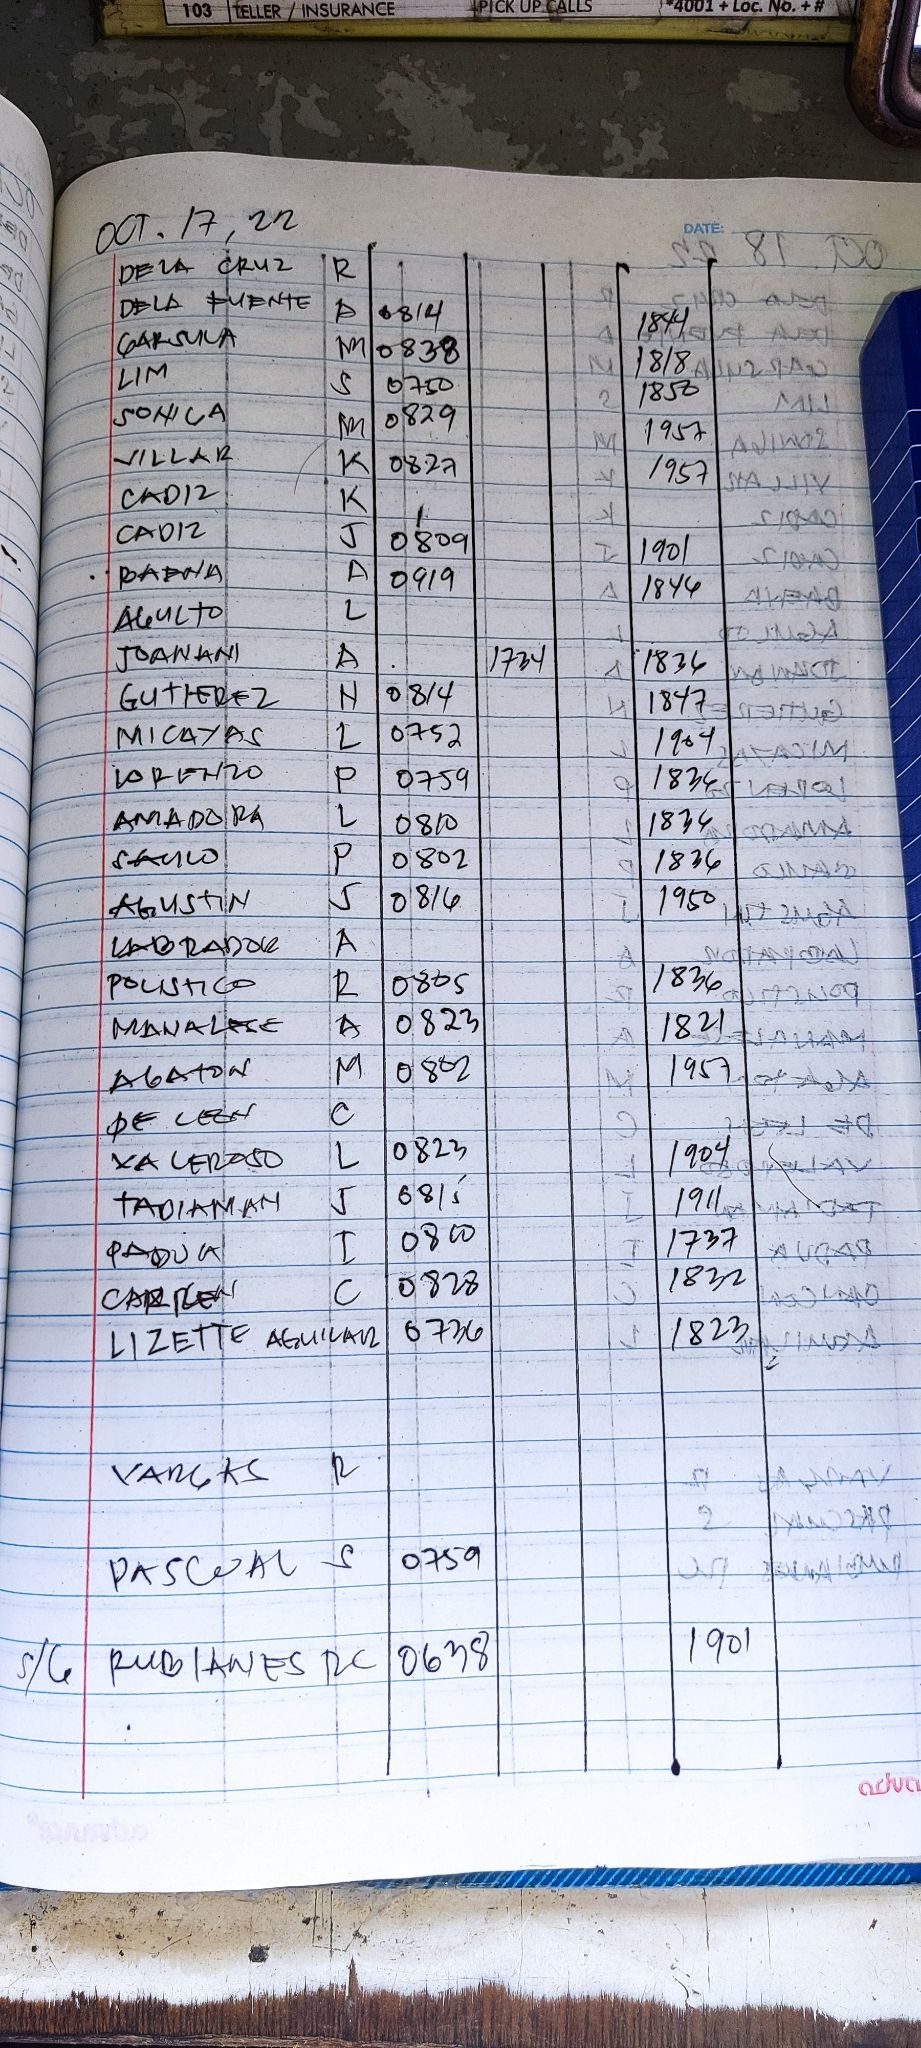 103 TELLER / INSURANCE PICK UP CALLS *4001 + Loc. No. + #
OCT. 17, 22
DATE:
DELA CRUZ R
DELA FUENTE A 0814 1844
GARSULA M 0838 1818
LIM S 0750 1850
SONICA M 0829 1957
VILLAR K 0827 1957
CADIZ K
CADIZ J 0809 1901
BAENA A 0919 1846
AGULTO L
JOANANI A 1734 1836
GUTIEREZ N 0814 1847
MICAYAS L 0752 1904
LORENZO P 0759 1836
AMADORA L 0810 1836
SAULO P 0802 1836
AGUSTIN J 0816 1950
LABRADOR A
POLISTICO R 0805 1836
MANALESE A 0823 1821
AGATON M 0802 1957
DE LEEN C
VALEROSO L 0823 1904
TADIAMAN J 0815 1911
PADUA I 0800 1737
C 0828 1832
LIZETTE AGUILAR 0736 1823
VARGAS R
PASCUAL S 0759
S/G RUBIANES RC 0638 1901